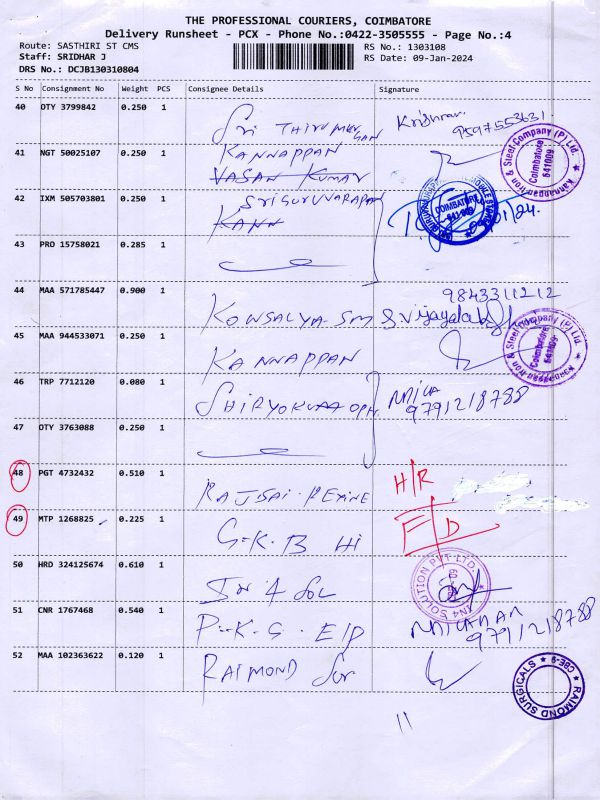 THE PROFESSIONAL COURIERS, COIMBATORE
Delivery Runsheet - PCX - Phone No.:0422-3505555 - Page No.:4
Route: SASTHIRI ST CMS
RS No.: 1303108
Staff: SRIDHAR J
RS Date: 09-Jan-2024
DRS No.: DCJB130310804
S No Consignment No Weight PCS Consignee Details Signature
40 DTY 3799842 0.250 1
Sri THIRUMURGAN
Krishnan
9597553631
41 NGT 50025107 0.250 1
KANNAPPAN
VASAN KUMAR
Kannappan Iron & Steel Company (P) Ltd.
Coimbatore
641009
42 IXM 505703801 0.250 1
SRI GURUVARAPAN
KANN
COIMBATORE
43 PRO 15758021 0.285 1
44 MAA 571785447 0.900 1
KOWSALYA SM
9843311212
45 MAA 944533071 0.250 1
KANNAPPAN
Kannappan Iron & Steel Company (P) Ltd.
Coimbatore
641009
46 TRP 7712120 0.080 1
9791218788
47 DTY 3763088 0.250 1
48 PGT 4732432 0.510 1
RAJSRI REXINE
H/R
49 MTP 1268825 0.225 1
G.K.B Hi
E/D
50 HRD 324125674 0.610 1
In 4 Sol
IN4 SOLUTION PVT LTD.
51 CNR 1767468 0.540 1
P.K.G. E/P
9791218788
52 MAA 102363622 0.120 1
RAIMOND Sur
RAIMOND SURGICALS
CBE-9
11